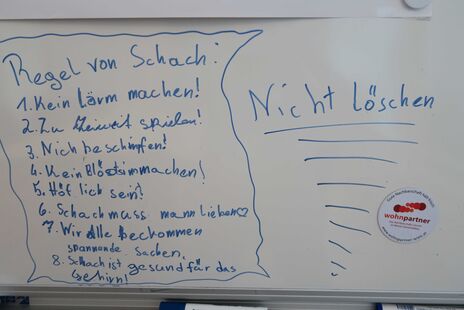 Regel von Schach:
1. Kein Lärm machen!
2. Zu zweit spielen!
3. Nich beschimfen!
4. Kein Blödsinmachen!
5. Höflich sein!
6. Schach muss mann lieben♡
7. Wir alle beckommen
spannende sachen,
8. Schach ist gesund für das
Gehirn!
Nicht löschen
wohnpartner